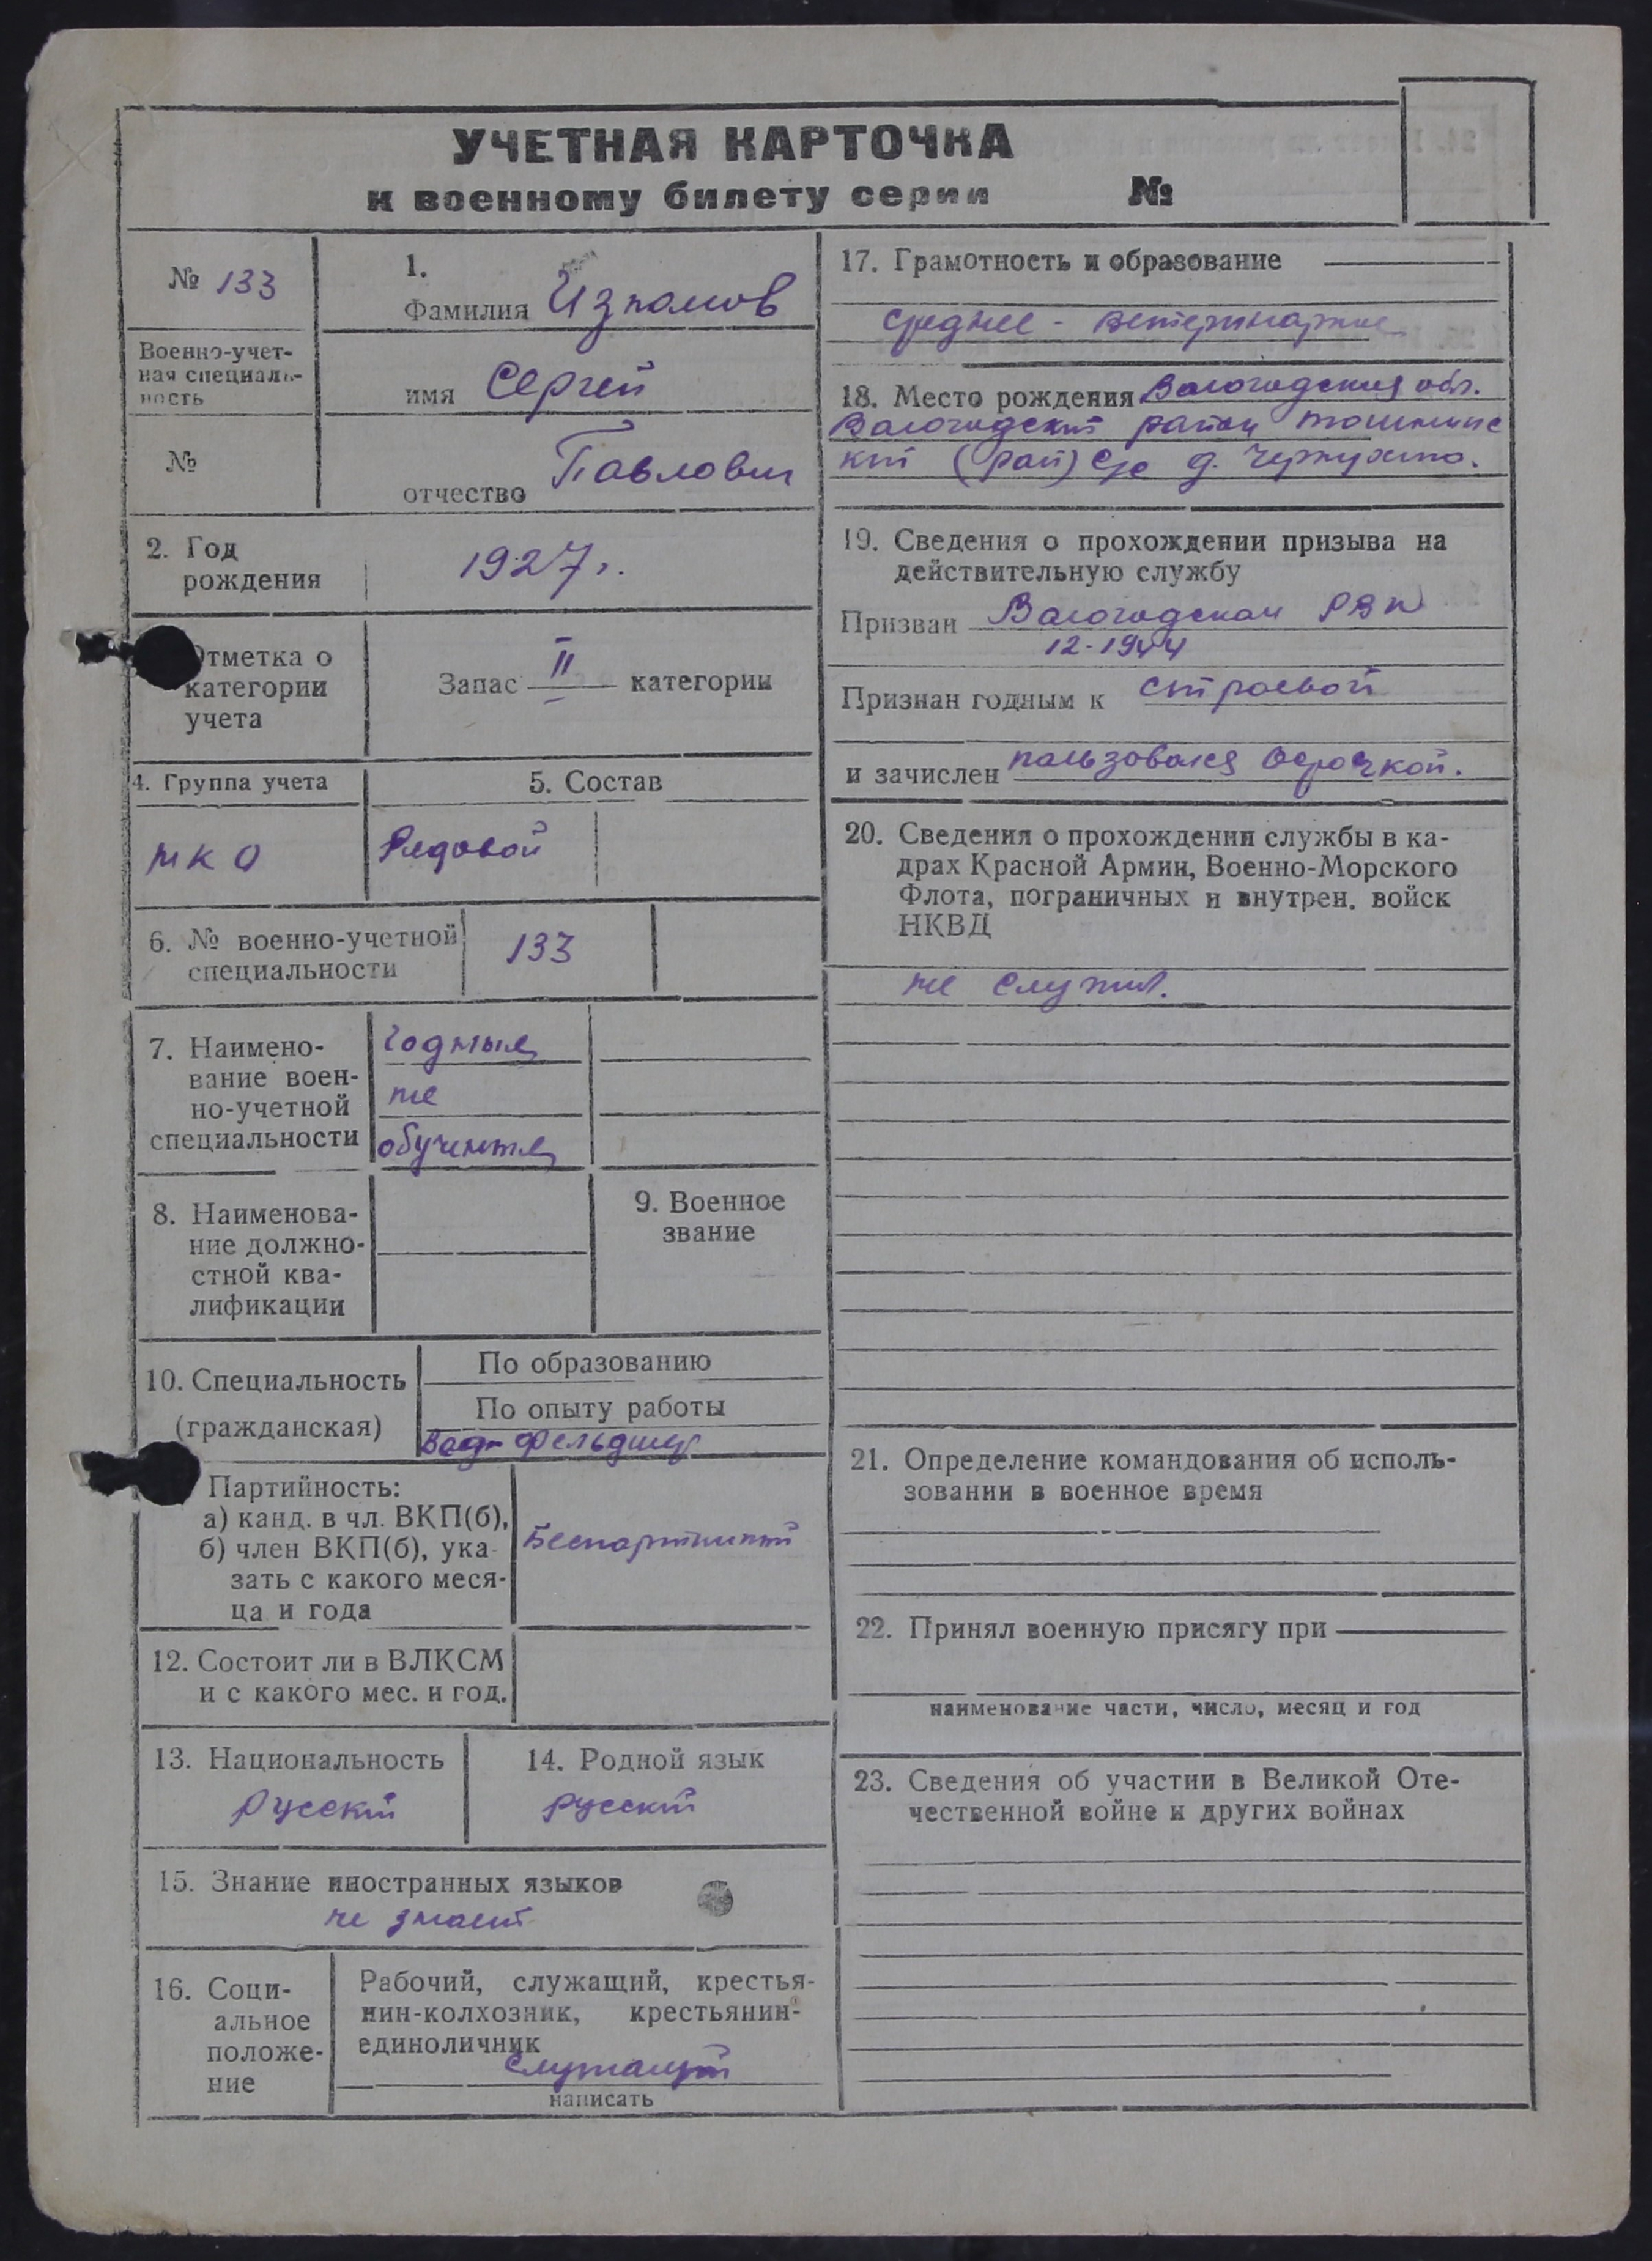 УЧЕТНАЯ КАРТОЧКА
к военному билету серии №
№ 133
Военно-учет-
ная специаль-
ность
№
1.
Фамилия Изюмов
имя Сергей
отчество Павлович
2. Год
рождения
1927 г.
Отметка о
категории
учета
Запас II категории
4. Группа учета
НКО
5. Состав
Рядовой
6. № военно-учетной
специальности
133
7. Наимено-
вание воен-
но-учетной
специальности
годные
не
обученные
8. Наименова-
ние должно-
стной ква-
лификации
9. Военное
звание
10. Специальность
(гражданская)
По образованию
По опыту работы
фельдшер
Партийность:
а) канд. в чл. ВКП(б),
б) член ВКП(б), ука-
зать с какого меся-
ца и года
Беспартийный
12. Состоит ли в ВЛКСМ
и с какого мес. и год.
13. Национальность
Русский
14. Родной язык
русский
15. Знание иностранных языков
не знает
16. Соци-
альное
положе-
ние
Рабочий, служащий, крестья-
нин-колхозник, крестьянин-
единоличник
служащий
написать
17. Грамотность и образование
среднее - ветеринарное
18. Место рождения Вологодская обл.
Вологодский район
кий (рай) с/с д.
19. Сведения о прохождении призыва на
действительную службу
Призван Вологодским РВК
12-1944
Признан годным к строевой
и зачислен пользовался отсрочкой.
20. Сведения о прохождении службы в ка-
драх Красной Армии, Военно-Морского
Флота, пограничных и внутрен. войск
НКВД
не служил.
21. Определение командования об исполь-
зовании в военное время
22. Принял военную присягу при
наименование части, число, месяц и год
23. Сведения об участии в Великой Оте-
чественной войне и других войнах